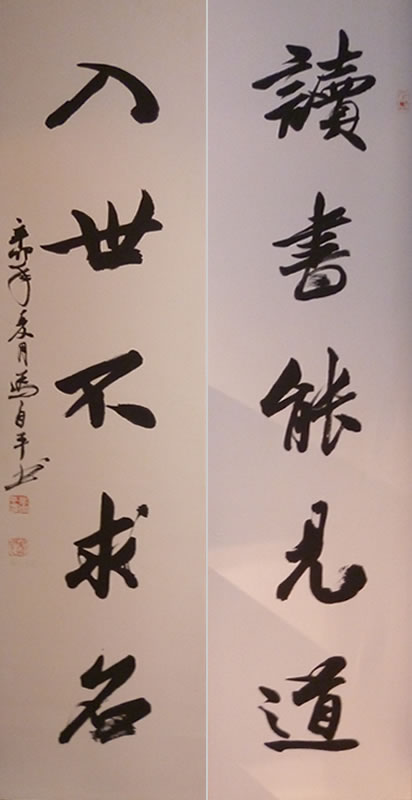 讀書能見道
入世不求名
辛卯年夏月馬自平書